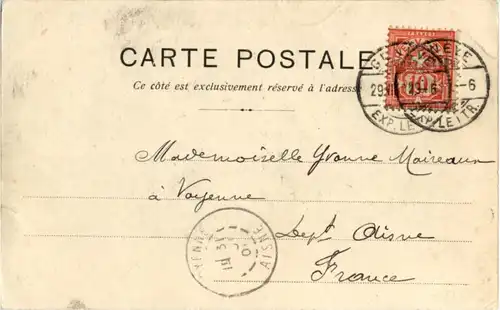 CARTE POSTALE
Ce côté est exclusivement réservé à l'adresse
10
EXP. LETTR.
Mademoiselle Yvonne Maireaux
à Voyenne
Dept Aisne
France
AISNE